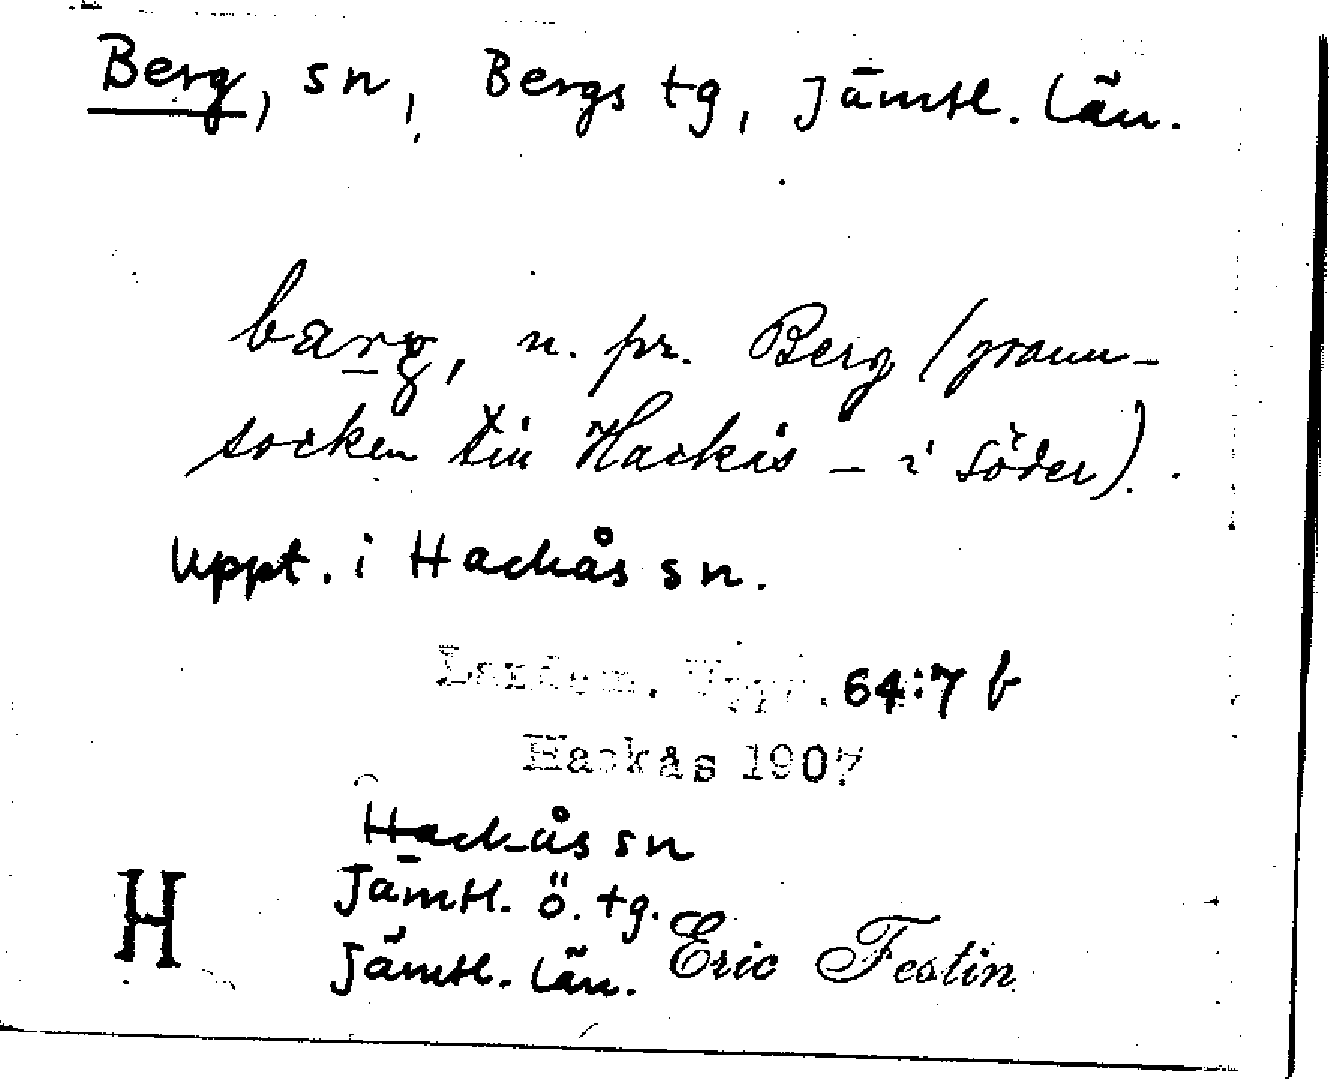 Berg, sn, Bergs tg, Jämtl. län.
barg, n. pr. Berg (grann-
socken till Hackås – i söder).
Uppt. i Hackås sn.
Landsm. Uppt. 64:7 b
Hackås 1907
Hackås sn
Jämtl. ö. tg.
H
Jämtl. län. Eric Festin